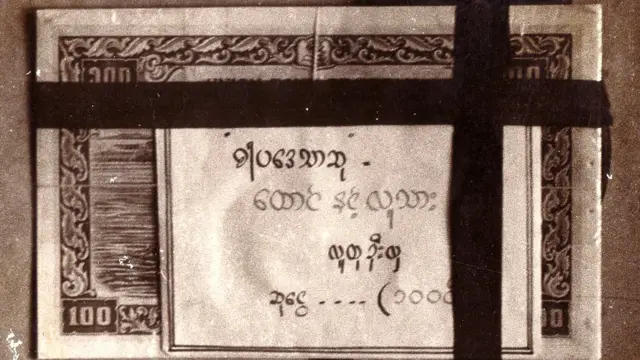 100
၁။ ပဒေသာဆု -
ထောင် နှင့် လူသား
လူထုဦးလှ
ဆုငွေ .... (၁၀၀
100